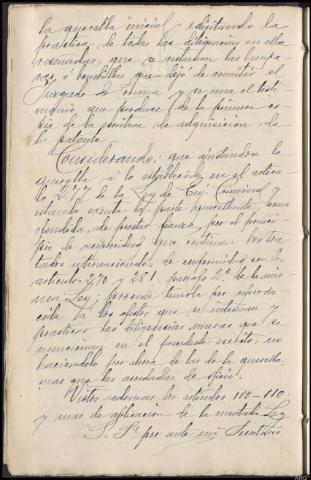 la querella inicial, solicitando la
práctica de todas las diligencias en ella
reseñadas, que se reclamen las
que dejó de remitir el
Juzgado de y se una el testi
monio que produce de la primera co
pia de la escritura de adquisición de
la patente.
Considerando: que ajustándose la
querella a lo establecido en el artícu
lo 277 de la Ley de Enj. Criminal y
estando exenta la parte querellante, como
ofendida, de prestar fianza, por el princi
pio de reciprocidad que contienen los tra
tados internacionales, de conformidad con los
artículos 270 y 281, párrafo 2º de la mis
ma Ley; procede tenerla por reprodu
cida a los efectos que se interesan y
practicar las diligencias nuevas que se
mencionan en el precedente escrito, en
por ahora las de la querella
mas que las acordadas de oficio.
Vistos además los artículos 100-110
y mas de aplicación de la mentada Ley
S. Sª por ante mi Secretario